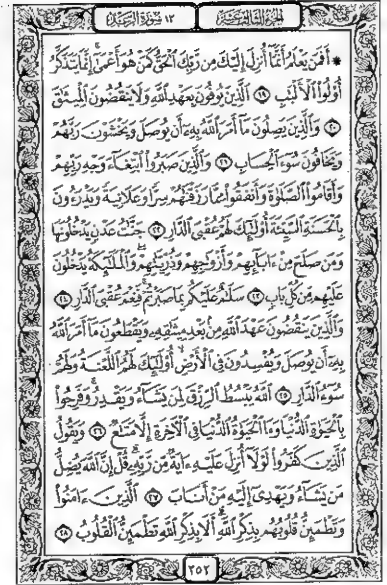 الجزء الثالث عشر
١٣ سورة الرعد
۞ أَفَمَن يَعْلَمُ أَنَّمَآ أُنزِلَ إِلَيْكَ مِن رَّبِّكَ ٱلْحَقُّ كَمَنْ هُوَ أَعْمَىٰٓ ۚ إِنَّمَا يَتَذَكَّرُ
أُو۟لُوا۟ ٱلْأَلْبَٰبِ ١٩ ٱلَّذِينَ يُوفُونَ بِعَهْدِ ٱللَّهِ وَلَا يَنقُضُونَ ٱلْمِيثَٰقَ
٢٠ وَٱلَّذِينَ يَصِلُونَ مَآ أَمَرَ ٱللَّهُ بِهِۦٓ أَن يُوصَلَ وَيَخْشَوْنَ رَبَّهُمْ
وَيَخَافُونَ سُوٓءَ ٱلْحِسَابِ ٢١ وَٱلَّذِينَ صَبَرُوا۟ ٱبْتِغَآءَ وَجْهِ رَبِّهِمْ
وَأَقَامُوا۟ ٱلصَّلَوٰةَ وَأَنفَقُوا۟ مِمَّا رَزَقْنَٰهُمْ سِرًّا وَعَلَانِيَةً وَيَدْرَءُونَ
بِٱلْحَسَنَةِ ٱلسَّيِّئَةَ أُو۟لَٰٓئِكَ لَهُمْ عُقْبَى ٱلدَّارِ ٢٢ جَنَّٰتُ عَدْنٍ يَدْخُلُونَهَا
وَمَن صَلَحَ مِنْ ءَابَآئِهِمْ وَأَزْوَٰجِهِمْ وَذُرِّيَّٰتِهِمْ ۖ وَٱلْمَلَٰٓئِكَةُ يَدْخُلُونَ
عَلَيْهِم مِّن كُلِّ بَابٍ ٢٣ سَلَٰمٌ عَلَيْكُم بِمَا صَبَرْتُمْ ۚ فَنِعْمَ عُقْبَى ٱلدَّارِ ٢٤
وَٱلَّذِينَ يَنقُضُونَ عَهْدَ ٱللَّهِ مِنۢ بَعْدِ مِيثَٰقِهِۦ وَيَقْطَعُونَ مَآ أَمَرَ ٱللَّهُ
بِهِۦٓ أَن يُوصَلَ وَيُفْسِدُونَ فِى ٱلْأَرْضِ ۙ أُو۟لَٰٓئِكَ لَهُمُ ٱللَّعْنَةُ وَلَهُمْ
سُوٓءُ ٱلدَّارِ ٢٥ ٱللَّهُ يَبْسُطُ ٱلرِّزْقَ لِمَن يَشَآءُ وَيَقْدِرُ ۚ وَفَرِحُوا۟
بِٱلْحَيَوٰةِ ٱلدُّنْيَا وَمَا ٱلْحَيَوٰةُ ٱلدُّنْيَا فِى ٱلْءَاخِرَةِ إِلَّا مَتَٰعٌ ٢٦ وَيَقُولُ
ٱلَّذِينَ كَفَرُوا۟ لَوْلَآ أُنزِلَ عَلَيْهِ ءَايَةٌ مِّن رَّبِّهِۦ ۗ قُلْ إِنَّ ٱللَّهَ يُضِلُّ
مَن يَشَآءُ وَيَهْدِىٓ إِلَيْهِ مَنْ أَنَابَ ٢٧ ٱلَّذِينَ ءَامَنُوا۟
وَتَطْمَئِنُّ قُلُوبُهُم بِذِكْرِ ٱللَّهِ ۗ أَلَا بِذِكْرِ ٱللَّهِ تَطْمَئِنُّ ٱلْقُلُوبُ ٢٨
٢٥٢